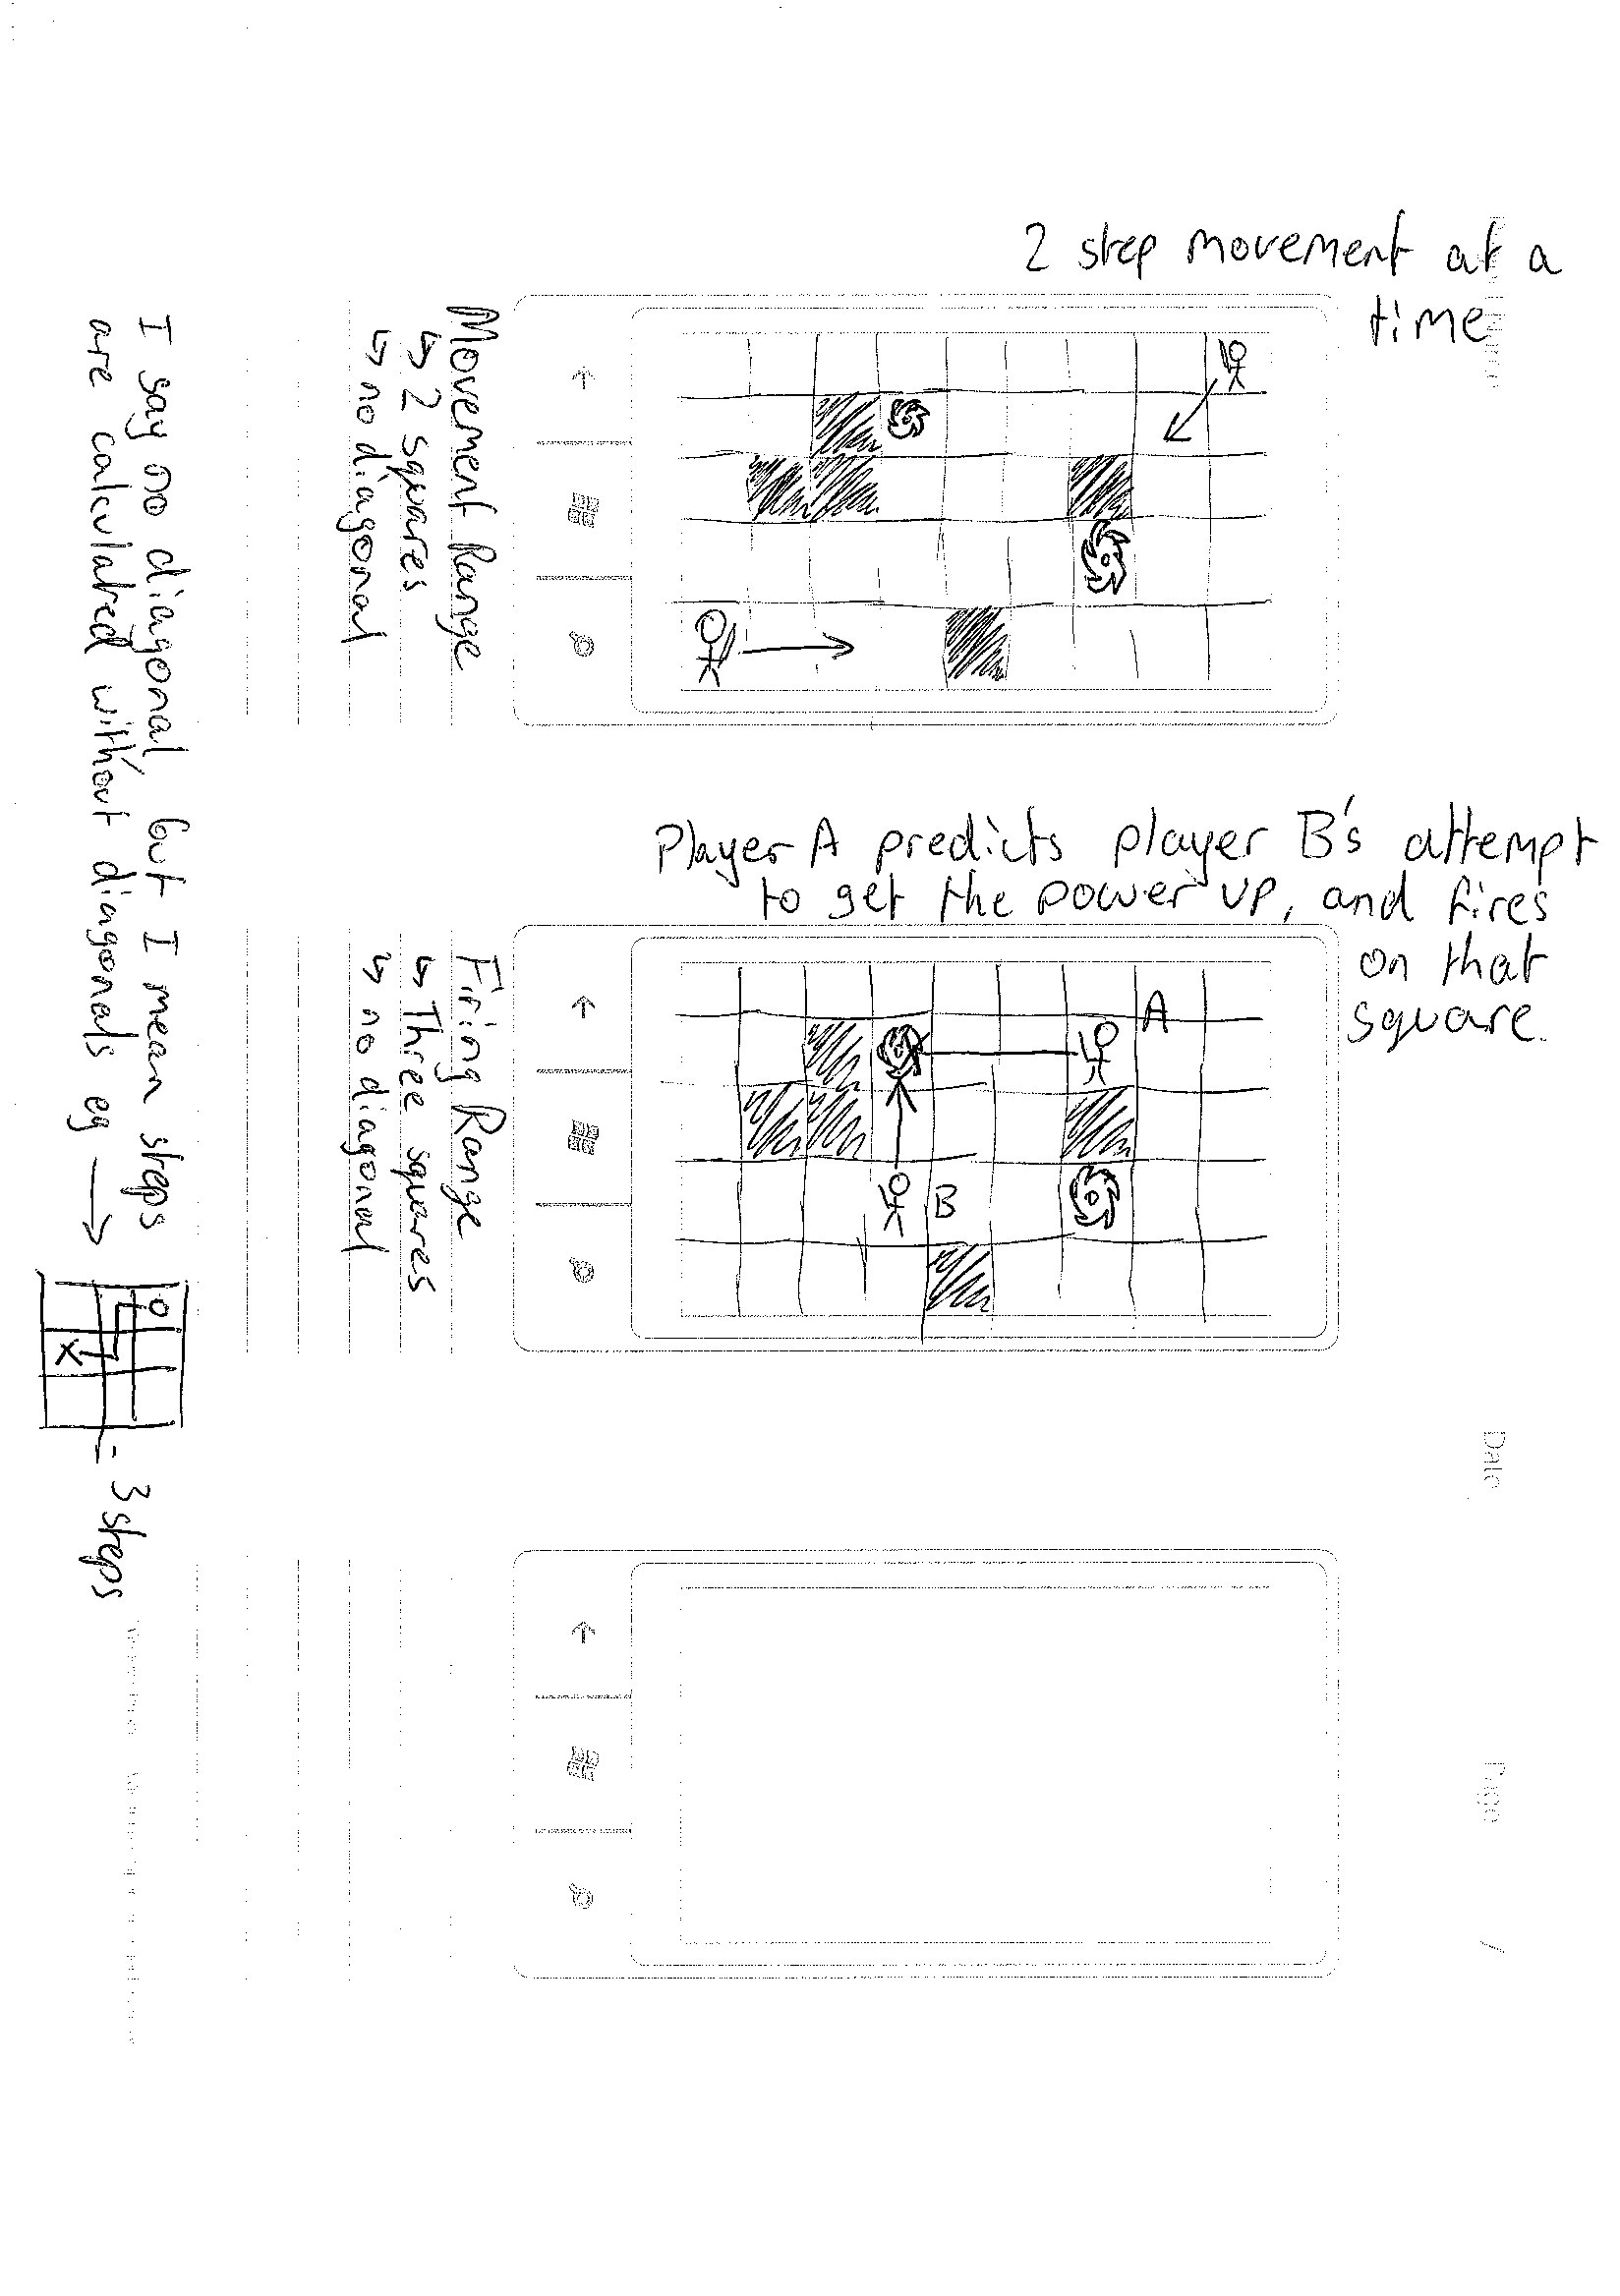 2 step movement at a
time
Movement Range
↳ 2 squares
↳ no diagonal
Player A predicts player B's attempt
to get the power up, and fires
on that
square.
A
B
Firing Range
↳ Three squares
↳ no diagonal
I say no diagonal, but I mean steps
are calculated without diagonals eg →
O
X
= 3 steps
Date
Page
/